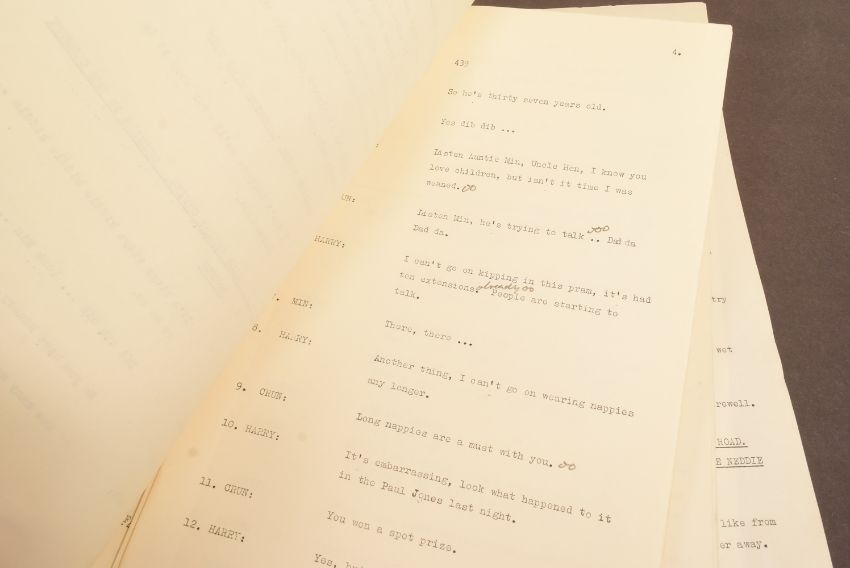 4.
439
So he's thirty seven years old.
Yes dib dib ...
Listen Auntie Min, Uncle Hen, I know you
love children, but isn't it time I was
weaned.
UN: Listen Min, he's trying to talk .. Dad da
Dad da.
HARRY: I can't go on kipping in this pram, it's had
ten extensions. already People are starting to
talk.
7. MIN: There, there ...
8. HARRY: Another thing, I can't go on wearing nappies
any longer.
9. CRUN: Long nappies are a must with you.
10. HARRY: It's embarrassing, look what happened to it
in the Paul Jones last night.
11. CRUN: You won a spot prize.
12. HARRY: Yes,
try
wet
rewell.
ROAD.
E NEDDIE
like from
er away.